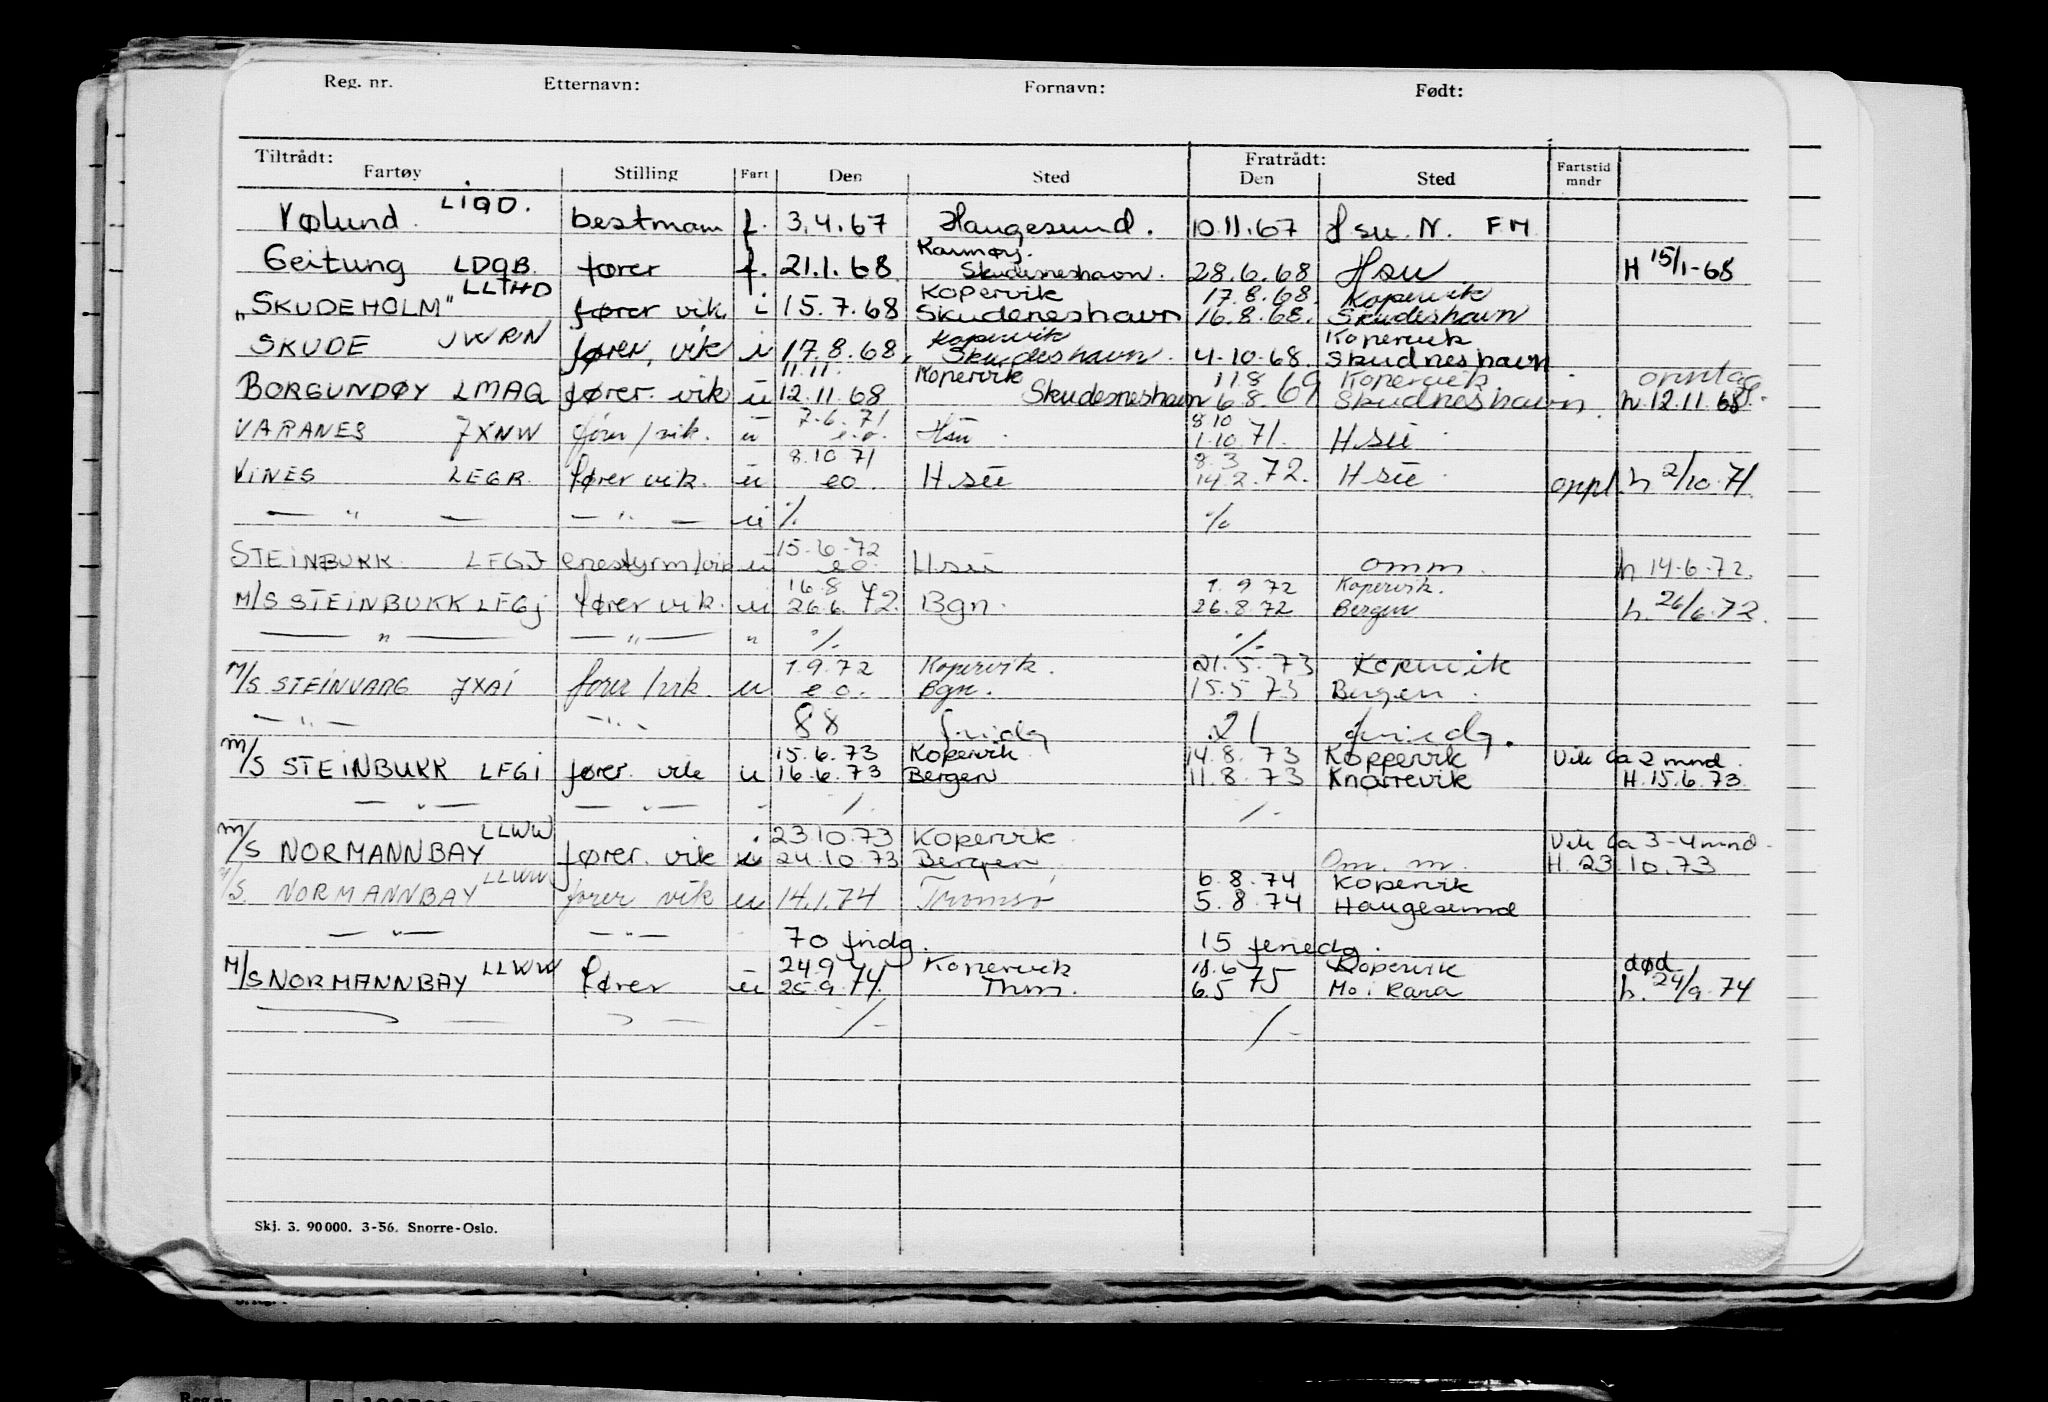 Reg. nr. Etternavn: Fornavn: Født:
Tiltrådt: Fratrådt: Fartstid
Fartøy Stilling Fart Den Sted Den Sted mndr
Vølund. LIQD. bestmann f. 3.4.67 Haugesund. 10.11.67 Hsu. N. F.M.
Karmøy.
Geitung LDQB. fører f. 21.1.68 Skudesneshavn. 28.6.68 Hsu H 15/1-68
LLHD Kopervik 17.8.68. Kopervik
"SKUDEHOLM" fører vik. i 15.7.68 Skudeneshavn 16.8.68. Skudeshavn
Kopervik Kopervik
SKUDE JWRN fører, vik u 17.8.68. Skudeshavn. 4.10.68. Skudneshavn
11.11. Kopervik 11.8 Kopervik. omntag.
BORGUNDØY LMAQ fører. vik u 12.11.68 Skudesneshavn 6.8.69 Skudneshavn. h. 12.11.68
7.6.71 8.10
VARANES JXNW fører/vik. u e.o. Hsu. 1.10.71. Hsu.
8.10.71 8.3
VINES LEGR. fører vik. u eo Hsu 14.2.72. Hsu. oppl. h 2/10.71.
— " — — " — u % %
15.6.72
STEINBUKK. LFGJ enestyrm/vik u e.o. Hsu omm. h 14.6.72.
16.8 1.9.72 Kopervik.
M/S STEINBUKK LFGj fører vik. u 26.6.72. Bgn. 26.8.72 Bergen h. 26/6.72.
— " — — " — " % %
1.9.72 Kopervik. 21.5.73 Kopervik
M/S STEINVARG JXAi fører/vik. u e.o. Bgn. 15.5.73 Bergen.
— " — — " — 88 fridg 21 friedg.
15.6.73 Kopervik 14.8.73 Koppervik Vik ca 2 mnd.
M/S STEINBUKK LFGi fører. vik u 16.6.73 Bergen 11.8.73 Knarrevik H. 15.6.73
— " — — " — - % %
LLWW i 23.10.73 Kopervik Vik ca 3-4 mnd.
M/S NORMANNBAY fører. vik u 24.10.73 Bergen Om. m. H. 23.10.73
LLWW 6.8.74 Kopervik
M/S. NORMANNBAY fører vik u 14.1.74 Tromsø 5.8.74 Haugesund
— " — — " — 70 fridg. 15 feriedg.
LLWW 24.9 Kopervik 11.6 Kopervik død
M/S NORMANNBAY fører u 25.9.74. Thm. 6.5 75 Mo i Rana h. 24/9.74
% %
Skj. 3. 90000. 3-56. Snorre-Oslo.